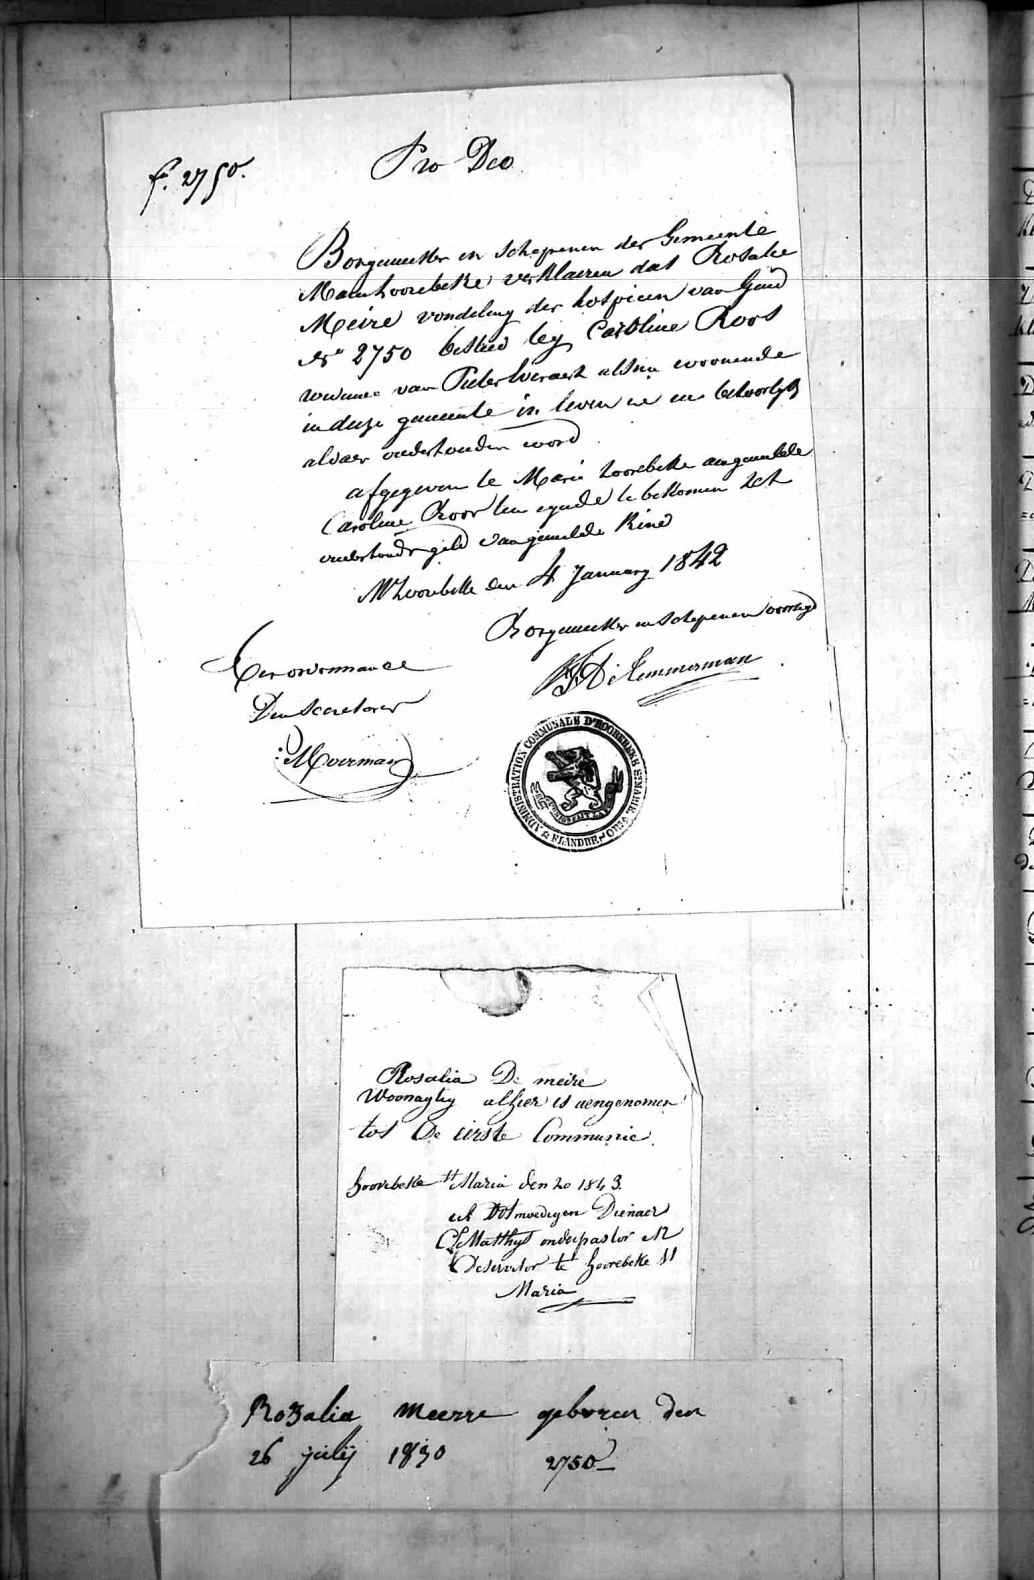 f. 2750.
Pro Deo
Borgemeester en schepenen der Gemeente
Maria hoorebeke verklaeren dat Rosalie
Meire vondeling der hospicen van Gend
Nº 2750 besteed bey Caroline Roos
weduwe van Pieter woonende
in deze gemeente in leven is en behoorlyk
aldaer onderhouden word
afgegeven te Marie hoorebeke aengemelde
Caroline Roos ten eynde te bekomen het
onderhoudsgeld van gemelde Kind
Mhoorebeke den 4 January 1842
Borgemeester en schepenen voornoemd
De Temmerman
Per ordonnance
Den Secretaris
Moerman
ADMINISTRATION COMMUNALE D'HOOREBEKE STE MARIE FLANDRE ORIE
Rosalia De meire
Woonagtig alhier is aengenomen
tot De eerste Communie
hoorebeke St Maria den 20 1843
uE ootmoedigen Dienaer
Matthys onderpastor
Deservitor te hoorebeke St
Maria
Rozalia meerre geboren den
26 julij 1830 2750